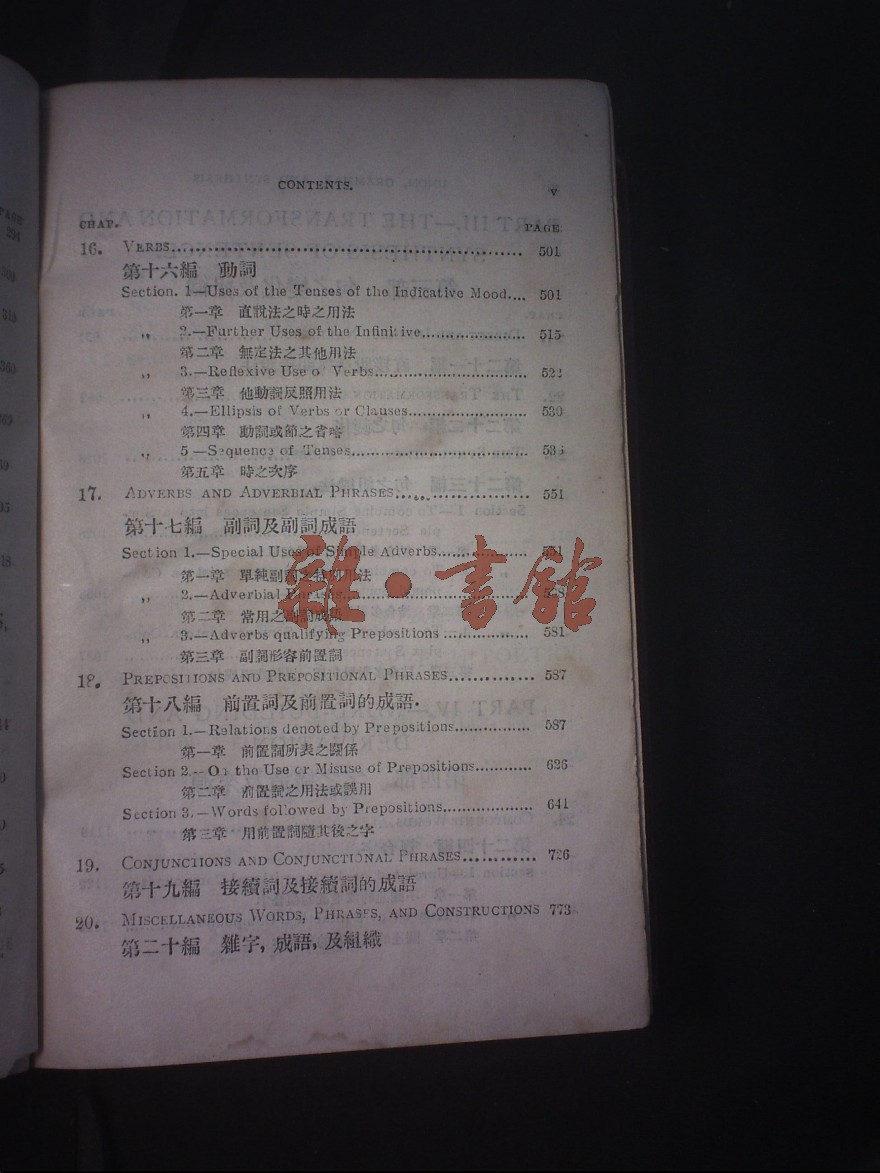 CONTENTS. v
CHAP. PAGE
16. VERBS 501
第十六編 動詞
Section. 1—Uses of the Tenses of the Indicative Mood.... 501
第一章 直說法之時之用法
,, 2.—Further Uses of the Infinitive 515
第二章 無定法之其他用法
,, 3.—Reflexive Use o Verbs 522
第三章 他動詞反照用法
,, 4.—Ellipsis of Verbs or Clauses 530
第四章 動詞或節之省略
,, 5—Sequence of Tenses
第五章 時之次序
17. ADVERBS AND ADVERBIAL PHRASES 551
第十七編 副詞及副詞成語
Section 1.—Special Uses of Simple Adverbs 551
第一章 單純副詞之特別用法
,, 2.—Adverbial
第二章 常用之副詞成語
,, 3.—Adverbs qualifying Prepositions 581
第三章 副詞形容前置詞
18. PREPOSITIONS AND PREPOSITIONAL PHRASES 587
第十八編 前置詞及前置詞的成語.
Section 1.—Relations denoted by Prepositions 587
第一章 前置詞所表之關係
Section 2.—On the Use or Misuse of Prepositions 626
第二章 前置詞之用法或誤用
Section 3.—Words followed by Prepositions 641
第三章 用前置詞隨其後之字
19. CONJUNCTIONS AND CONJUNCTIONAL PHRASES 726
第十九編 接續詞及接續詞的成語
20. MISCELLANEOUS WORDS, PHRASES, AND CONSTRUCTIONS 773
第二十編 雜字, 成語, 及組織
雜·書館